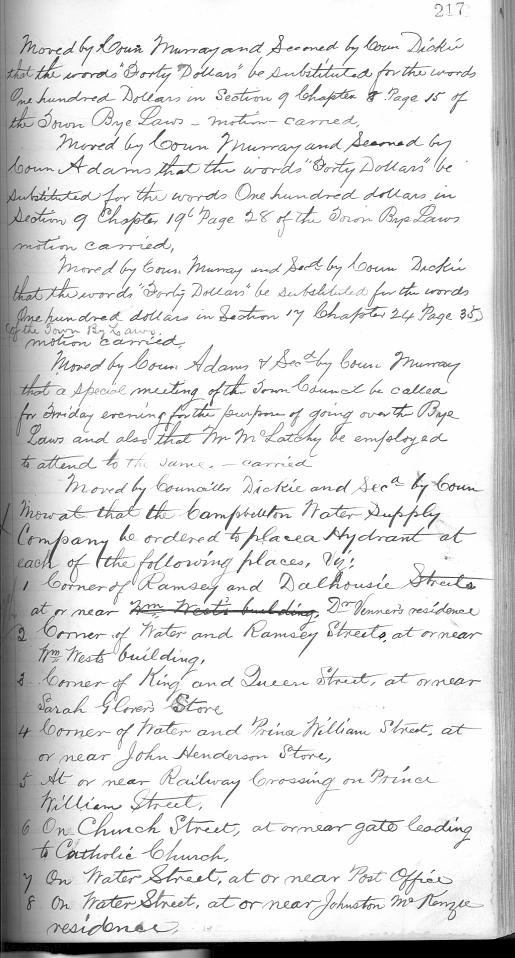 217
Moved by Coun Murray and Seconed by Coun Dickie
that the words "Forty Dollars" be substituted for the words
One hundred Dollars in Section 9 Chapter 8 Page 15 of
the Town Bye Laws - motion - carried,
Moved by Coun Murray and Seconed by
Coun Adams that the words "Forty Dollars" be
substituted for the words One hundred dollars in
Section 9 Chapter 19 Page 28 of the Town Bye Laws
motion carried,
Moved by Coun Murray and Secd by Coun Dickie
that the words "Forty Dollars" be substituted for the words
One hundred dollars in Section 17 Chapter 24 Page 35
(of the Town By Laws.
motion carried,
Moved by Coun Adams & Secd by Coun Murray
that a special meeting of the Town Council be called
for Friday evening for the purpose of going over the Bye
Laws and also that Mr McLatchy be employed
to attend to the same. - carried
Moved by Counciller Dickie and Secd by Coun
Mowat that the Campbellton Water Supply
Company be ordered to place a Hydrant at
each of the following places, Viz;
1 Corner of Ramsey and Dalhousie Streets
at or near Wm West's building, Dr Venner's residence
2 Corner of Water and Ramsey Streets, at or near
Wm Wests building,
3 Corner of King and Queen Street, at or near
Sarah Glover's Store
4 Corner of Water and Prince William Street, at
or near John Henderson Store,
5 At or near Railway Crossing on Prince
William Street,
6 On Church Street, at or near gate leading
to Catholic Church,
7 On Water Street, at or near Post Office
8 On Water Street, at or near Johnston McKenzie
residence,